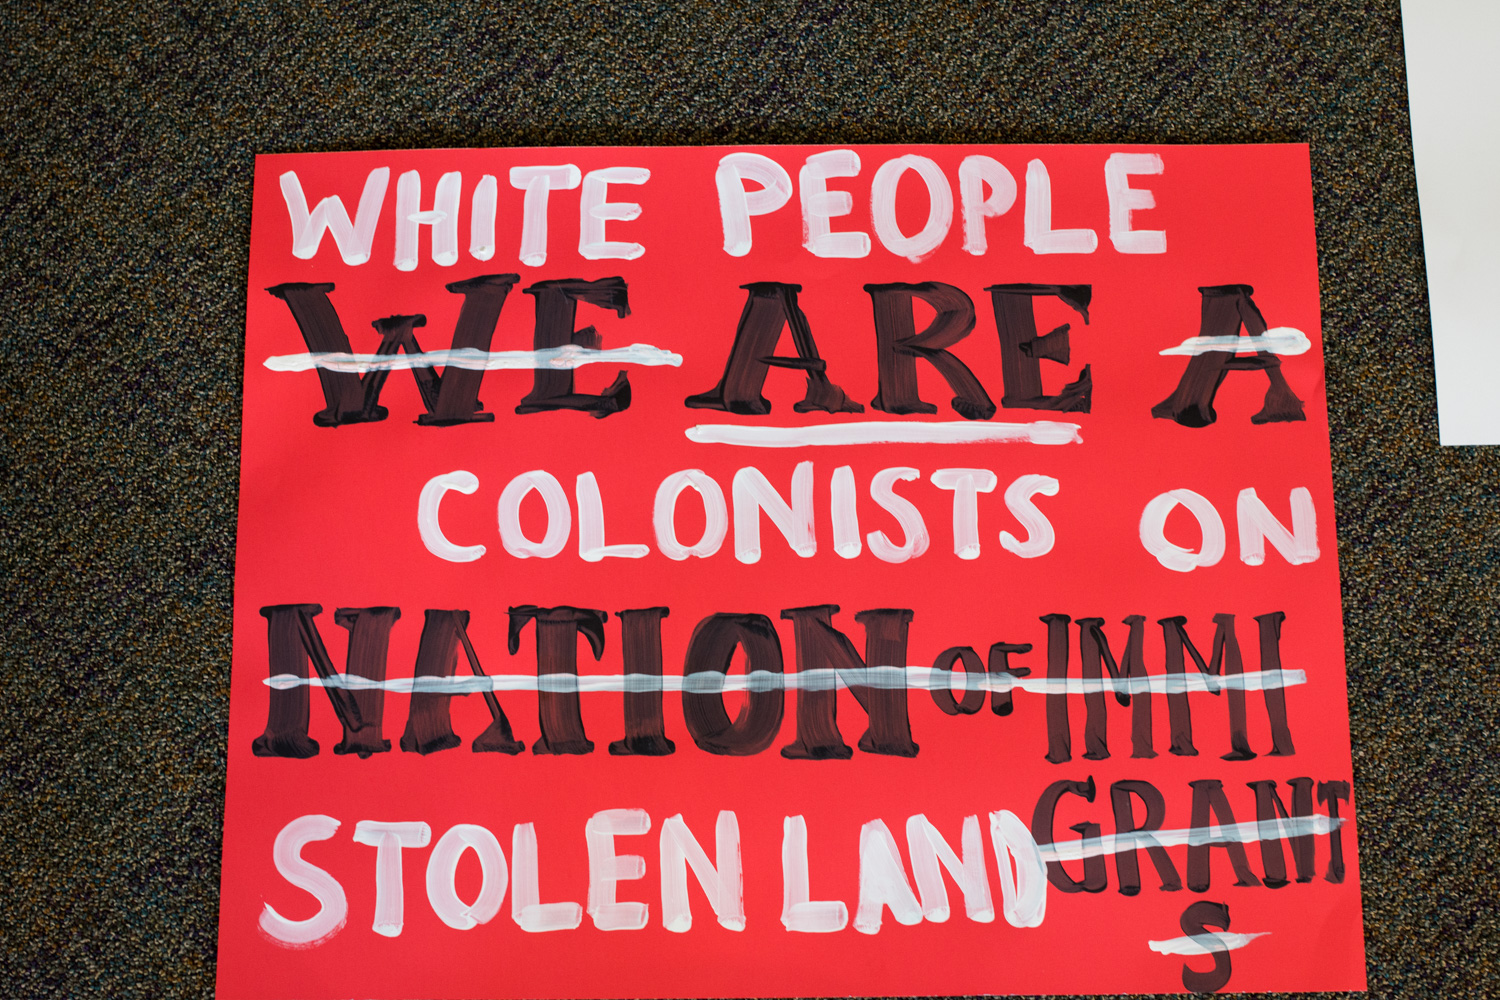 WHITE PEOPLE
WE ARE A
COLONISTS ON
NATION OF IMMI
GRANT
STOLEN LAND
S